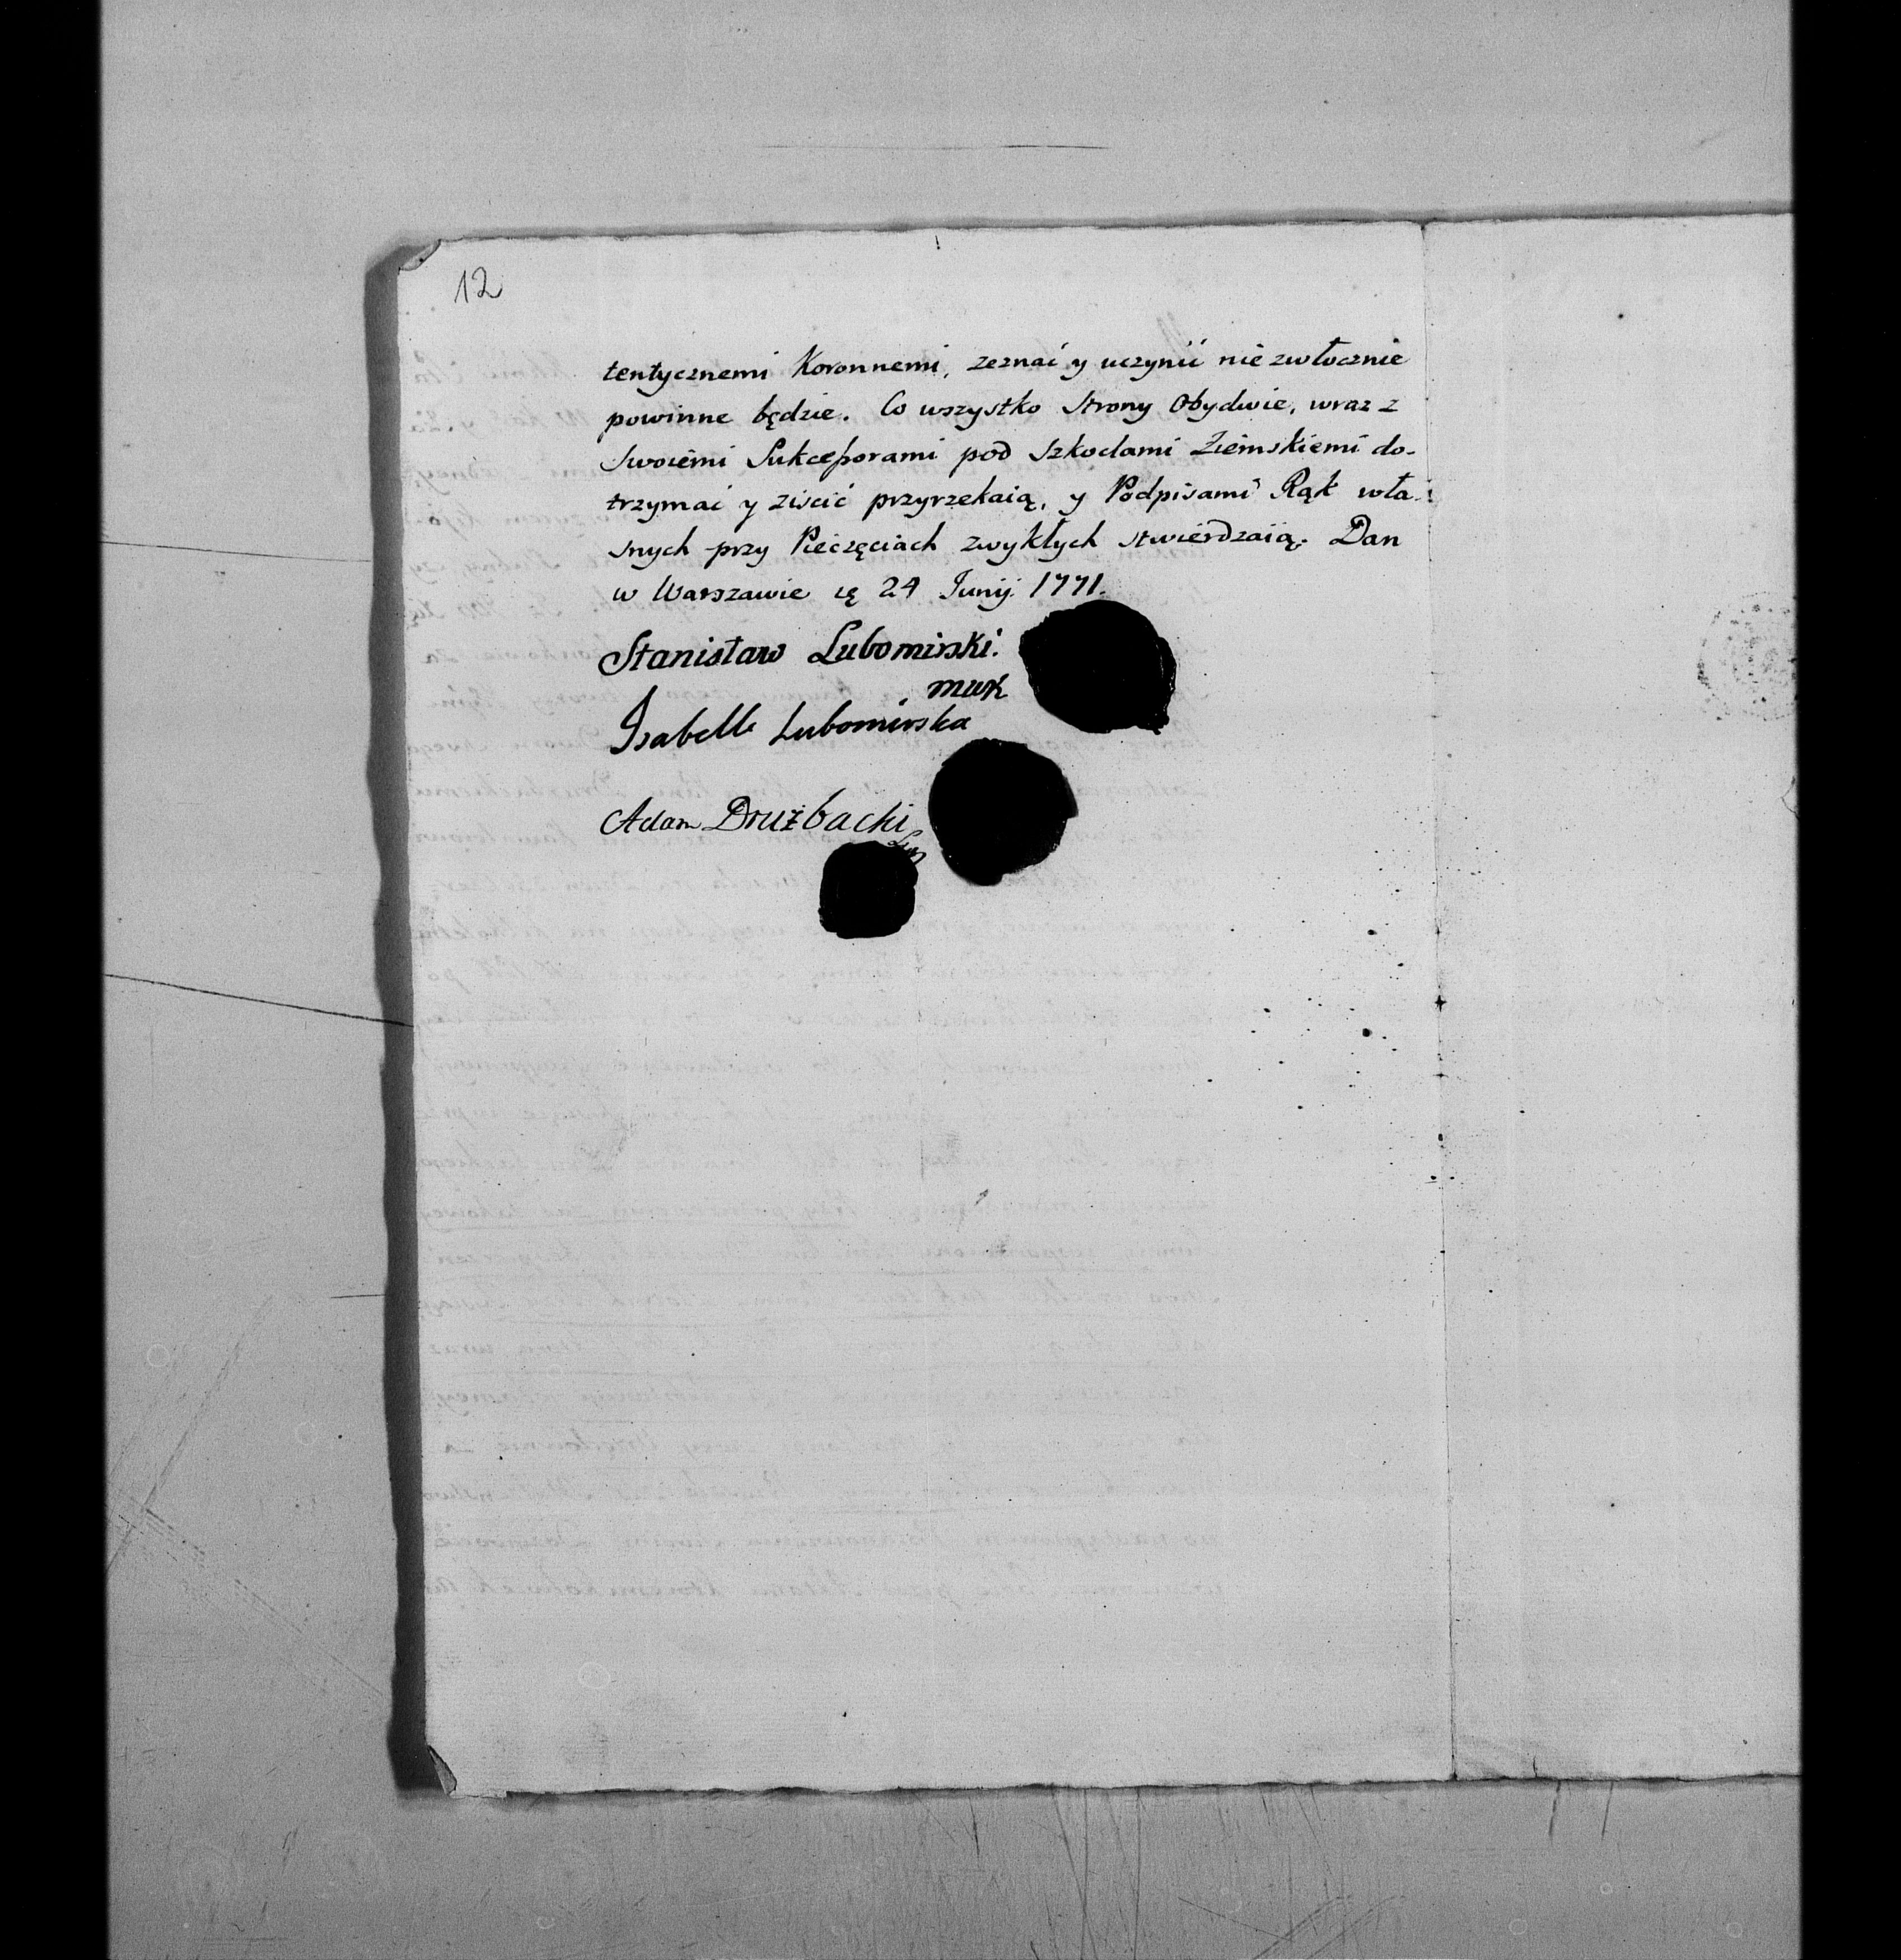 12
tentycznemi Koronnemi, zeznać y uczynić nie zwłocznie
powinne będzie. Co wszystko Strony Obydwie, wraz z
Swoiemi Sukceſsorami pod Szkodami Ziemskiemi do-
trzymać y ziścić przyrzekaią, y Podpisami Rąk wła-
snych przy Pieczęciach zwykłych stwierdzaią. Dan
w Warszawie 24 Junij 1771.
Stanisław Lubomirski.
mwk
Isabella Lubomirska
Adam Drużbacki